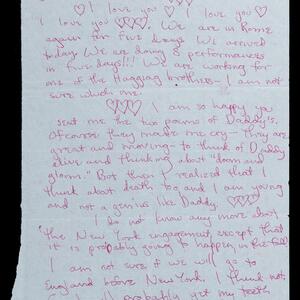 ♡ I love you ♡ I love you ♡
I love you ♡♡♡. We are in Rome
again for five days. We arrived
today. We are doing 8 performances
in five days!!! We are working for
one of the Haggiag brothers — I am not
sure which one.
♡♡♡ I am so happy you
sent me the two poems of Daddy's.
Of course they made me cry — They are
great and moving — to think of Daddy
alive and thinking about "doom and
gloom." But then I realized that I
think about death too and I am young
and not a genius like Daddy. ♡♡♡
I do not know any more about
the New York engagement, except that
it is probably going to happen in the Fall
I am not sure if we will go to
England before New York, I think not,
probably get my teeth